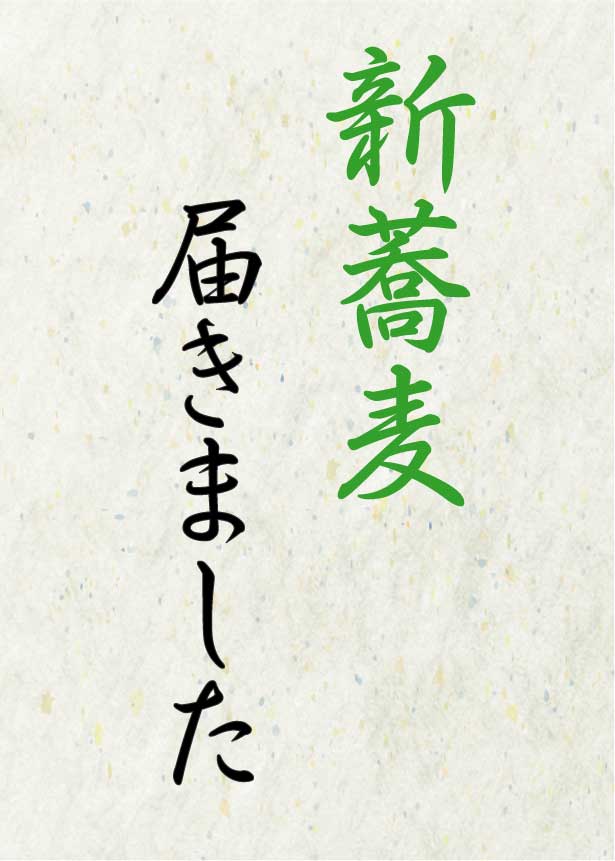 新蕎麦
届きました